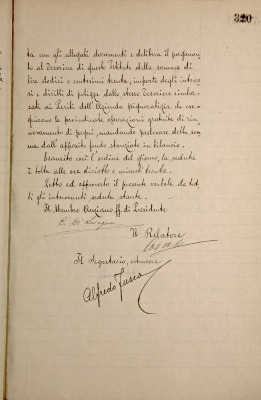 320
ta con gli allegati documenti e delibera il pagamen-
to al Tesoriere di questo Istituto della somma di
lire dodici e centesimi trenta, importo degli interes-
si e diritti di polizza dallo stesso Tesoriere rimbor-
sati ai Periti dell'Azienda pignoratizia che ese-
guirono le preindicate operazioni gratuite di rin-
novamento di pegni, mandando prelevare della som-
ma dall'apposito fondo stanziato in bilancio.
Esaurito così l'ordine del giorno, la seduta
è tolta alle ore diciotto e minuti trenta.
Letto ed approvato il presente verbale da tut-
ti gli intervenuti seduta stante.
Il Membro Anziano ff. di Presidente
Il Relatore
Il Segretario, estensore
Alfredo Fusco